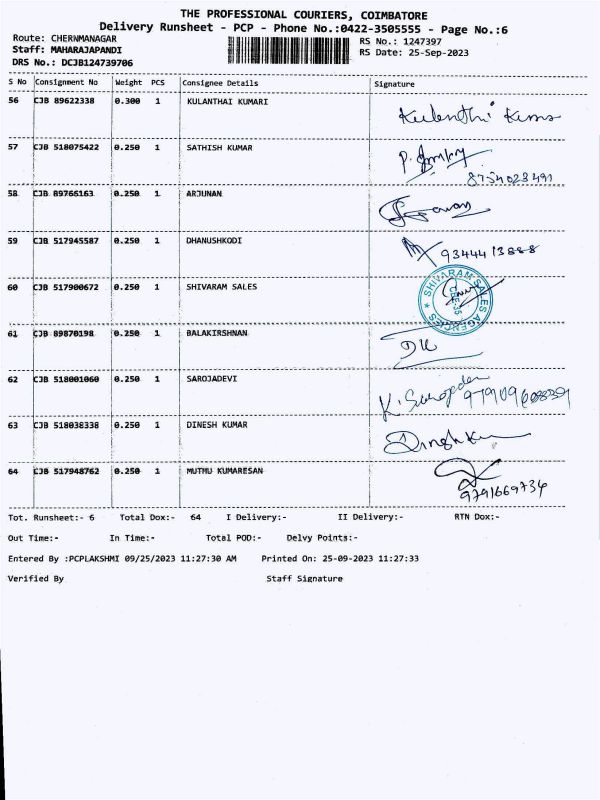 THE PROFESSIONAL COURIERS, COIMBATORE
Delivery Runsheet - PCP - Phone No.:0422-3505555 - Page No.:6
Route: CHERNMANAGAR RS No.: 1247397
Staff: MAHARAJAPANDI RS Date: 25-Sep-2023
DRS No.: DCJB124739706
S No Consignment No Weight PCS Consignee Details Signature
56 CJB 89622338 0.300 1 KULANTHAI KUMARI
Kulanthi Kuma
57 CJB 518075422 0.250 1 SATHISH KUMAR
8754023491
58 CJB 89766163 0.250 1 ARJUNAN
59 CJB 517945587 0.250 1 DHANUSHKODI
9344413888
60 CJB 517900672 0.250 1 SHIVARAM SALES
SHIVARAM SALES AGENCIES
61 CJB 89870198 0.250 1 BALAKIRSHNAN
62 CJB 518001060 0.250 1 SAROJADEVI
K. Sarojadevi
63 CJB 518038338 0.250 1 DINESH KUMAR
Dinesh Ku
64 CJB 517948762 0.250 1 MUTHU KUMARESAN
9791669734
Tot. Runsheet:- 6 Total Dox:- 64 I Delivery:- II Delivery:- RTN Dox:-
Out Time:- In Time:- Total POD:- Delvy Points:-
Entered By :PCPLAKSHMI 09/25/2023 11:27:30 AM Printed On: 25-09-2023 11:27:33
Verified By Staff Signature